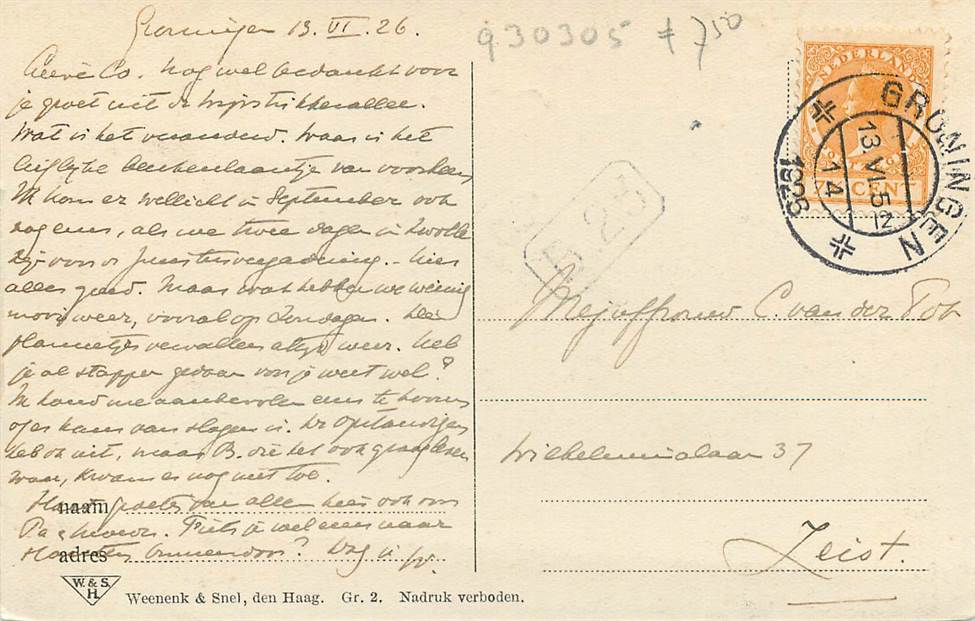 Groningen 13.VI.26.
930305 f 7,50
Lieve Co. Nog wel bedankt voor
je groet uit de
Wat is het veranderd. Waar is het
liefelijke beukenlaantje van voorheen
Ik kom er wellicht in September ook
nog eens, als we twee dagen in Zwolle
zijn voor de vergadering. - Hier
alles goed. Maar wat hebben we weinig
mooi weer, vooral op Zondagen. Veel
plannetjes vervallen altijd weer. Heb
je al stappen gedaan voor je weet wel?
Ik houd me aanbevolen eens te hooren
of er kans van slagen is. De Opstandigen
heb ik uit, maar B. die het ook graag lezen
wou, kwam er nog niet toe.
Hart. groeten van allen hier ook aan
Pa & moeder. Fiets je wel eens naar
binnendoor? Dag
naam
adres
NEDERLAND
7½ CENT
GRONINGEN
13 VI 5
14
1926
Mejuffrouw C. van der Tol
Wilhelminalaan 37
Zeist.
W. & S.
H.
Weenenk & Snel, den Haag. Gr. 2. Nadruk verboden.